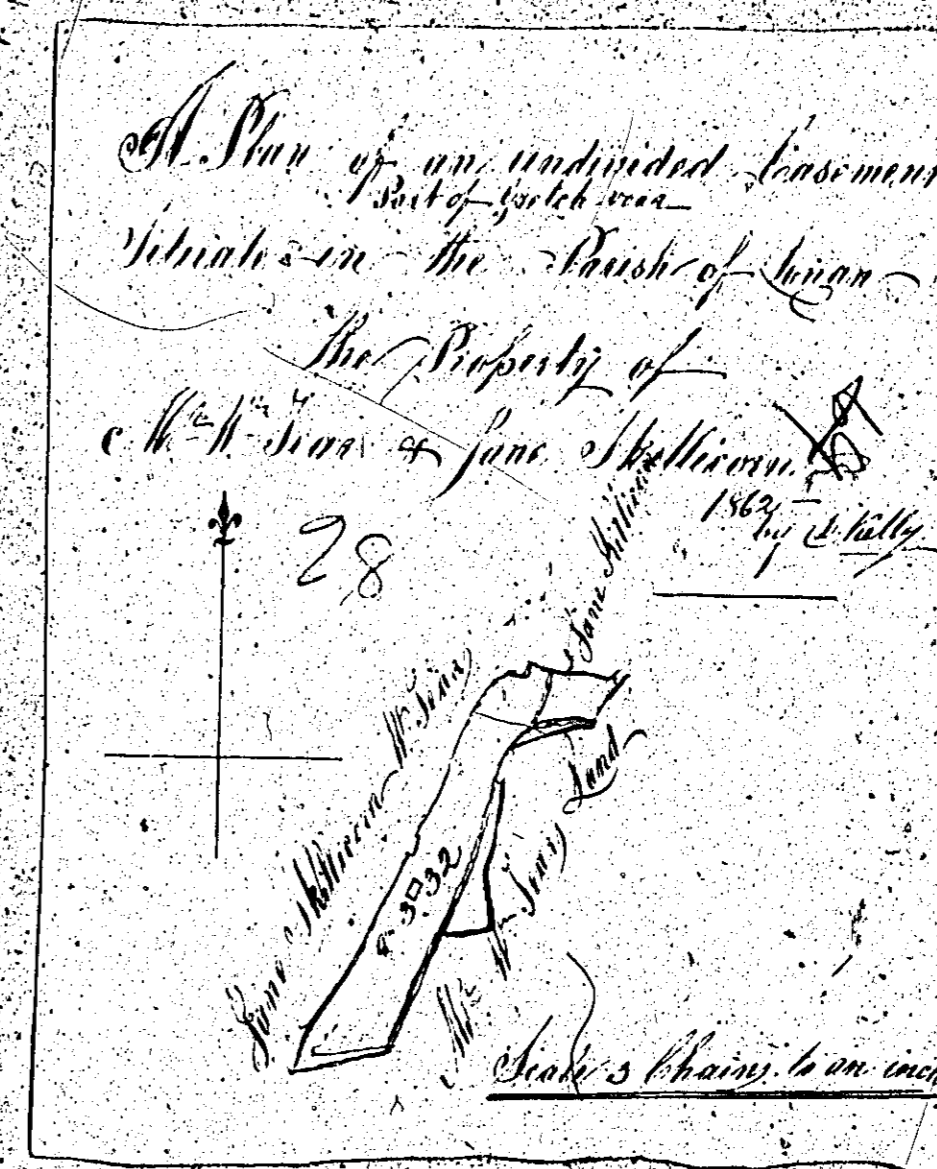 A Plan of an undivided Easement
Part of
Situate in the Parish of Lonan
The Property of
Mr Wm Tear & Jane Skillicorn
1862
by Kelly
28
Jane Skillicorn
Wm Tear
Jane Skillicorn
a 3 □ 32
Mr Wm Tears Land
Scale 3 Chains to an inch